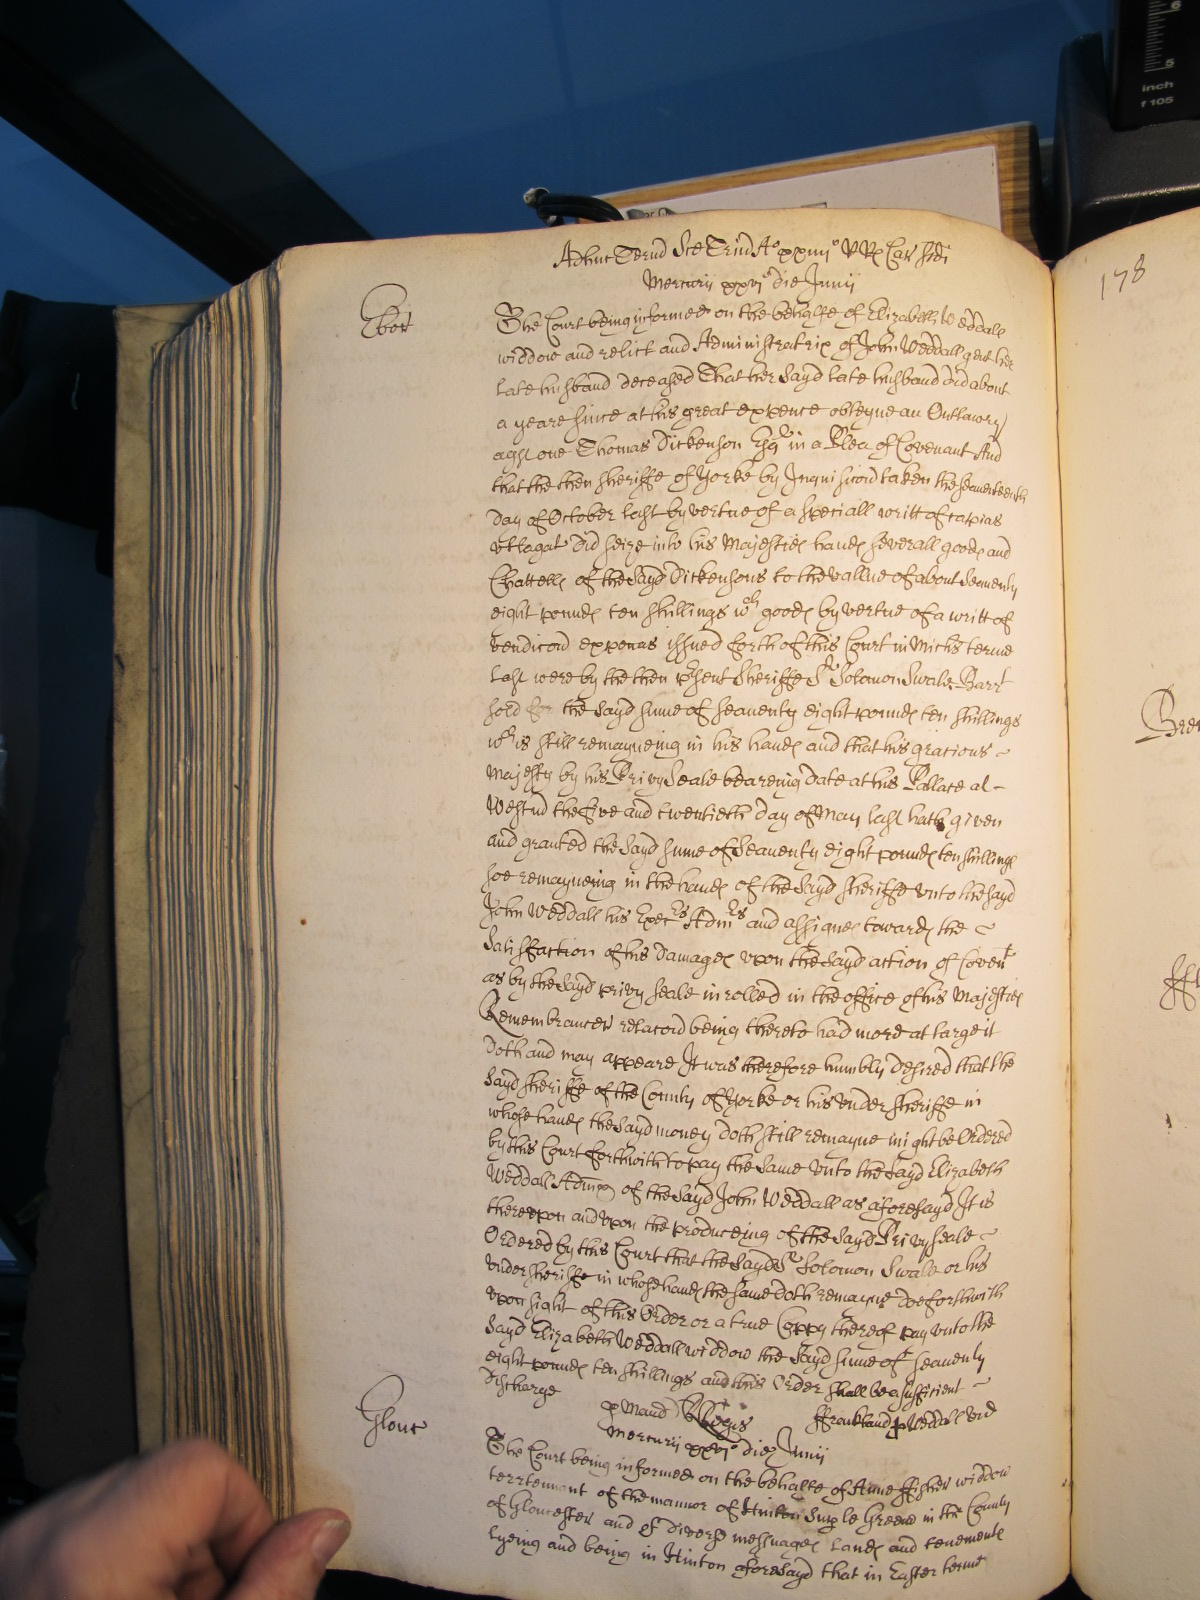 Adhuc Termino Sce Trin A° xxiiij° R Rs Car Scdi
Mercurij xxvj° die Junij
Ebor
The Court being informed on the behalfe of Elizabeth Weddall
widdow and relict and Administratrix of John Weddall gent her
late husband deceased That her sayd late husband did about
a yeare since at his great expence obteyne an Outlawry
agst one Thomas Dickenson Esqr in a Plea of Covenant And
that the then Sheriffe of Yorke by Inquisicon taken the seaventeenth
day of October last by vertue of a speciall writt of capias
utlagat did seize into his Majesties hands severall goods and
Chattells of the sayd Dickensons to the vallue of about seaventy
eight pounds ten shillings wch goods by vertue of a writt of
vendicond exponas issued forth of this Court in Michs terme
last were by the then psent Sheriffe Sr Solomon Swale Barrt
sold for the sayd sume of seaventy eight pounds ten shillings
wch is still remayneing in his hands and that his gracious
Majesty by his Privy Seale beareing date at his Pallace at
Westmr the five and twentieth day of May last hath given
and granted the sayd sume of Seaventy eight pounds ten shillings
soe remayneing in the hands of the sayd Sheriffe unto the sayd
John Weddall his Execrs Admrs and assignes towards the
satisfaction of his damages upon the sayd action of Covent
as by the sayd privy seale inrolled in the office of his Majesties
Remembrancer relacon being thereto had more at large it
doth and may appeare It was therefore humbly desired that the
sayd Sheriffe of the County of Yorke or his under Sheriffe in
whose hands the sayd money doth still remayne might be Ordered
by this Court forthwith to pay the same unto the sayd Elizabeth
Weddall Admx of the sayd John Weddall as aforesayd It is
thereupon and upon the produceing of the sayd Privy seale
Ordered by this Court that the sayd Sr Solomon Swale or his
undersheriffe in whose hands the same doth remayne doe forthwith
upon sight of this Order or a true Coppy thereof pay unto the
sayd Elizabeth Weddall widdow the sayd sume of seaventy
eight pounds ten shillings and this Order shall be a sufficient
discharge
ffrankland p Weddall vid
Mercurij xxvj° die Junij
Glouc
The Court being informed on the behalfe of Anne ffisher widdow
terrtennant of the mannor of Hinton in the County
of Glocester and of divers messuages lands and tenements
lyeing and being in Hinton aforesayd that in Easter terme
178
inch
f 105
5
6